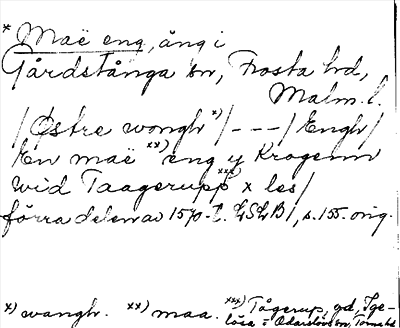 * Maë eng, äng i
Gårdstånga sn, Frosta hd,
Malm. l.
/Østre wongh x)/ - - - / Engh/
En maë xx) eng y Krogenn
wid Taagerupp xxx) x les/
förra delen av 1570-t. LSLB/, s. 155. orig.
x) wangh. xx) maa. xxx) Tågerup, gd, Ige-
lösa o Odarslövs sn, Torna hd